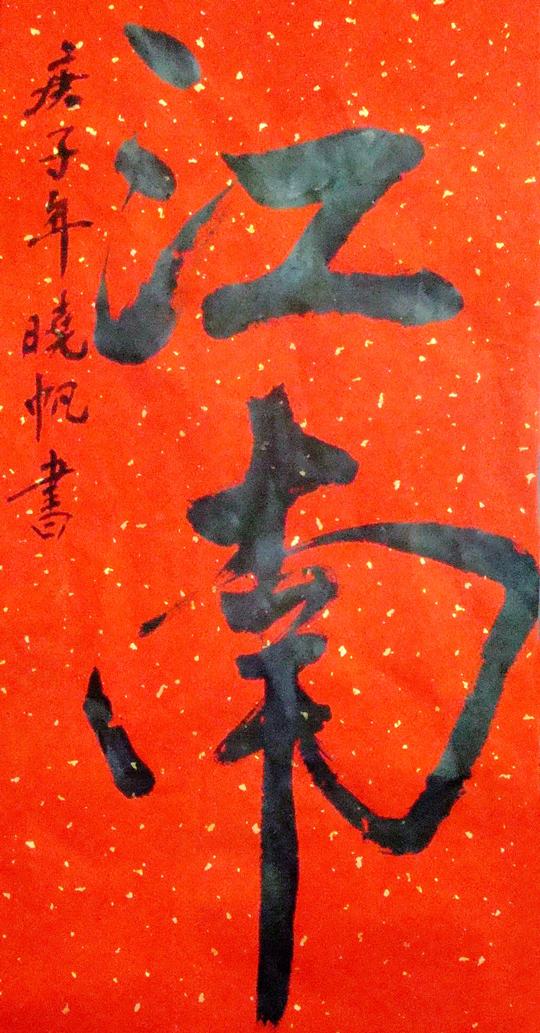 江南
庚子年曉帆書